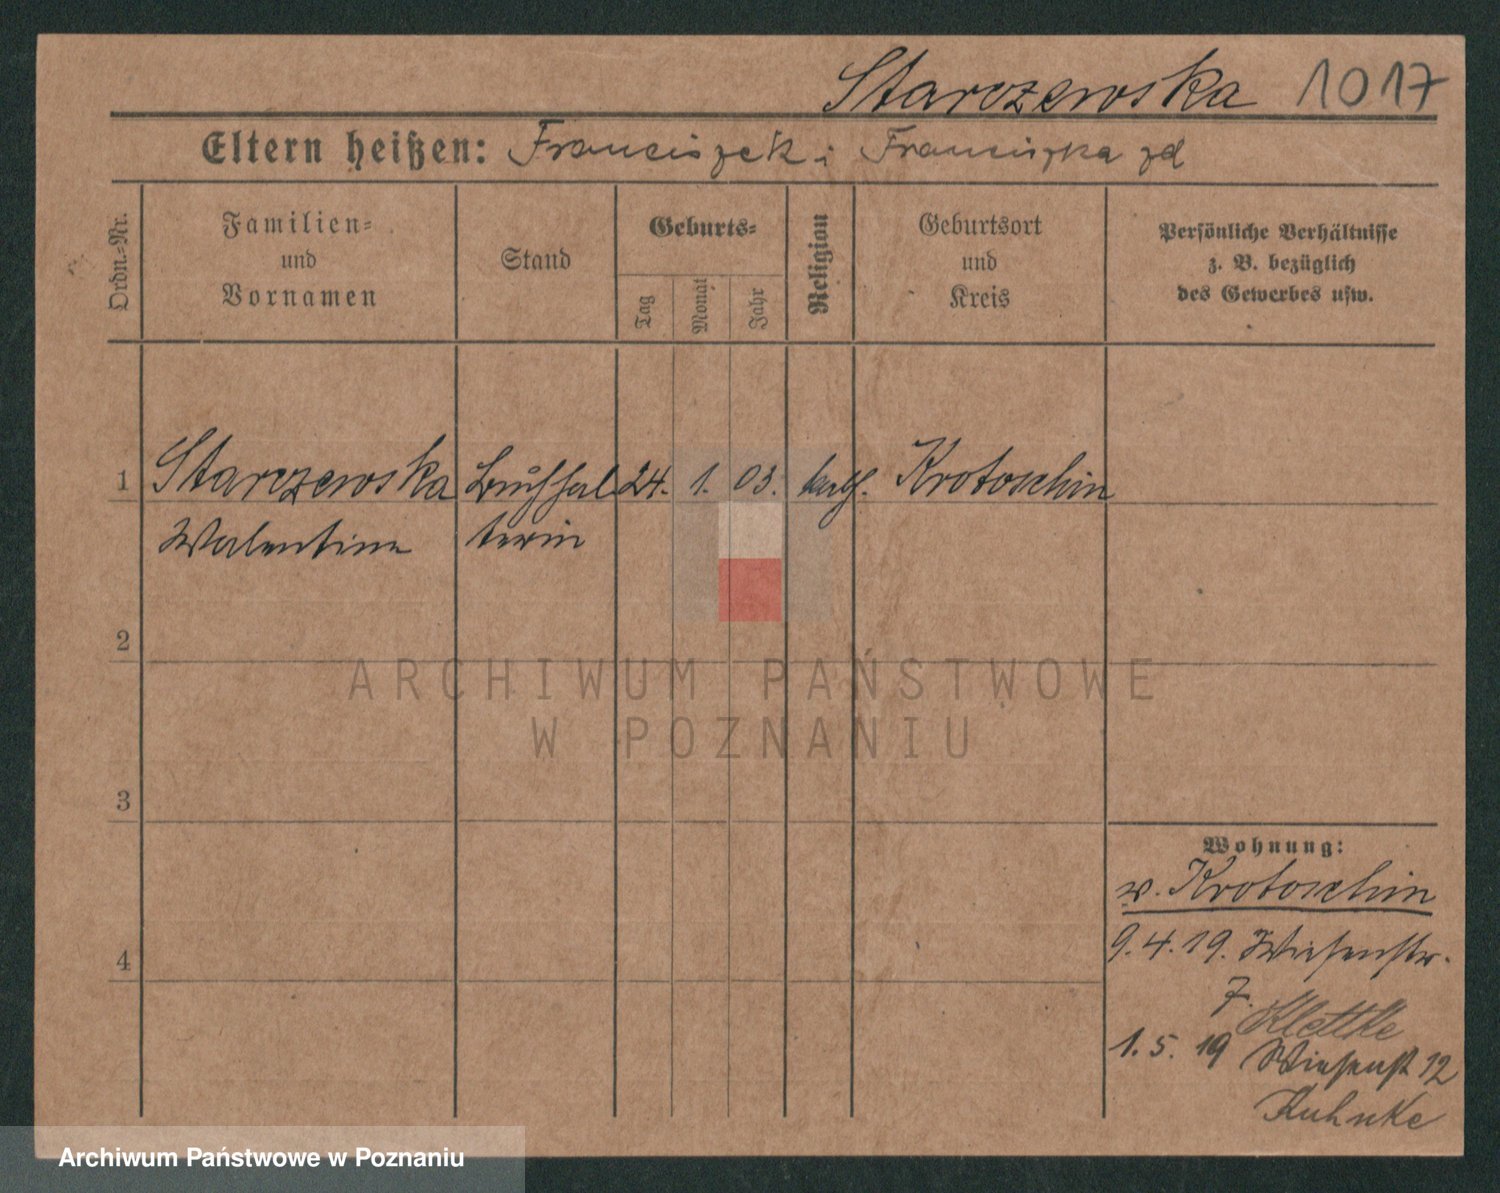 Starczewska 1017
Eltern heißen: Franciszek i Franciszka zd
Ordn.-Nr.
Familien-
und
Vornamen
Stand
Geburts-
Tag
Monat
Jahr
Religion
Geburtsort
und
Kreis
Persönliche Verhältnisse
z. B. bezüglich
des Gewerbes usw.
1 Starczewska Buchhal 24. 1. 03. kath. Krotoschin
Walentine terin
2
3
4
Wohnung:
v. Krotoschin
9.4.19. Wiesenstr.
7. Klettke
1.5.19 Wiesenst 12
Kuhnke
ARCHIWUM PAŃSTWOWE
W POZNANIU
Archiwum Państwowe w Poznaniu